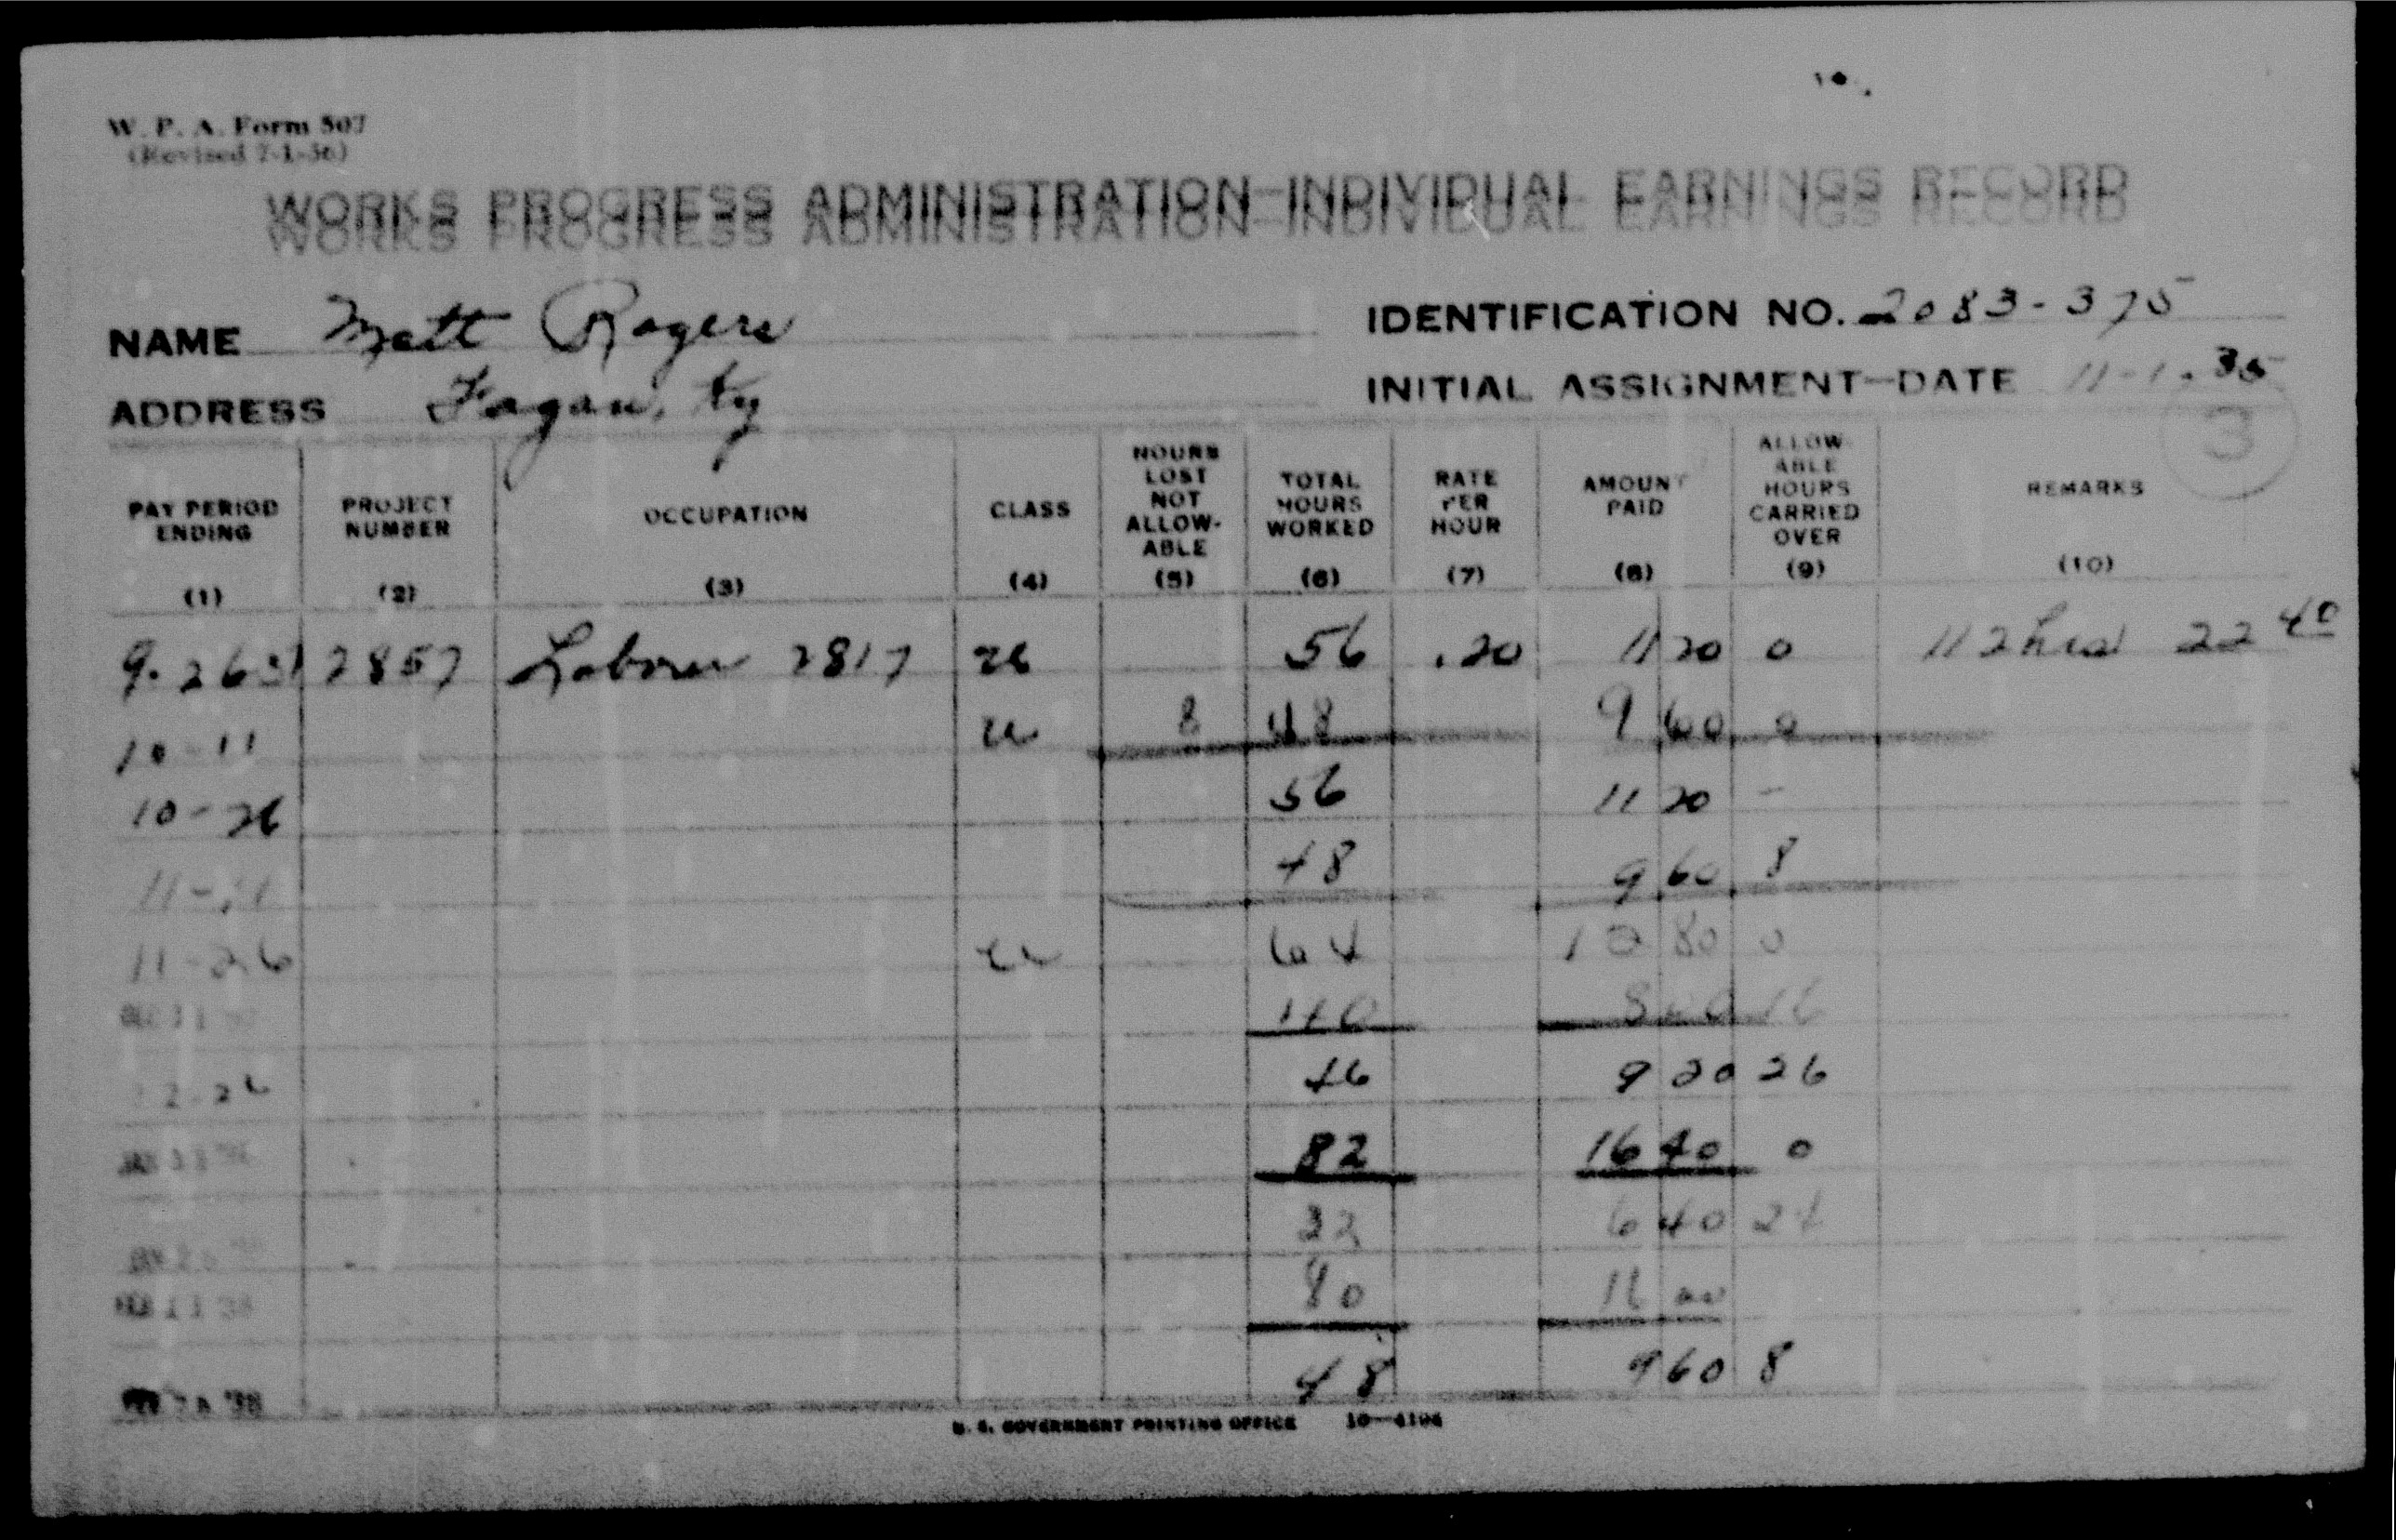 W. P. A. Form 507
(Revised 7-1-36)
WORKS PROGRESS ADMINISTRATION—INDIVIDUAL EARNINGS RECORD
NAME Matt Rogers IDENTIFICATION NO. 2083-375
ADDRESS Fagan, Ky INITIAL ASSIGNMENT—DATE 11-1-35
3
PAY PERIOD ENDING (1) PROJECT NUMBER (2) OCCUPATION (3) CLASS (4) HOURS LOST NOT ALLOW-ABLE (5) TOTAL HOURS WORKED (6) RATE PER HOUR (7) AMOUNT PAID (8) ALLOW-ABLE HOURS CARRIED OVER (9) REMARKS (10)
9-26 2857 Laborer 2817 56 .20 11 20 0 112 hrs 22 40
10-11 8 48 9 60 0
10-26 56 11 20 -
11-11 48 9 60 8
11-26 64 80 0
40 16
2-26 46 9 20 26
82 16 40 0
32 6 40 24
80 16 00
48 9 60 8
U. S. GOVERNMENT PRINTING OFFICE